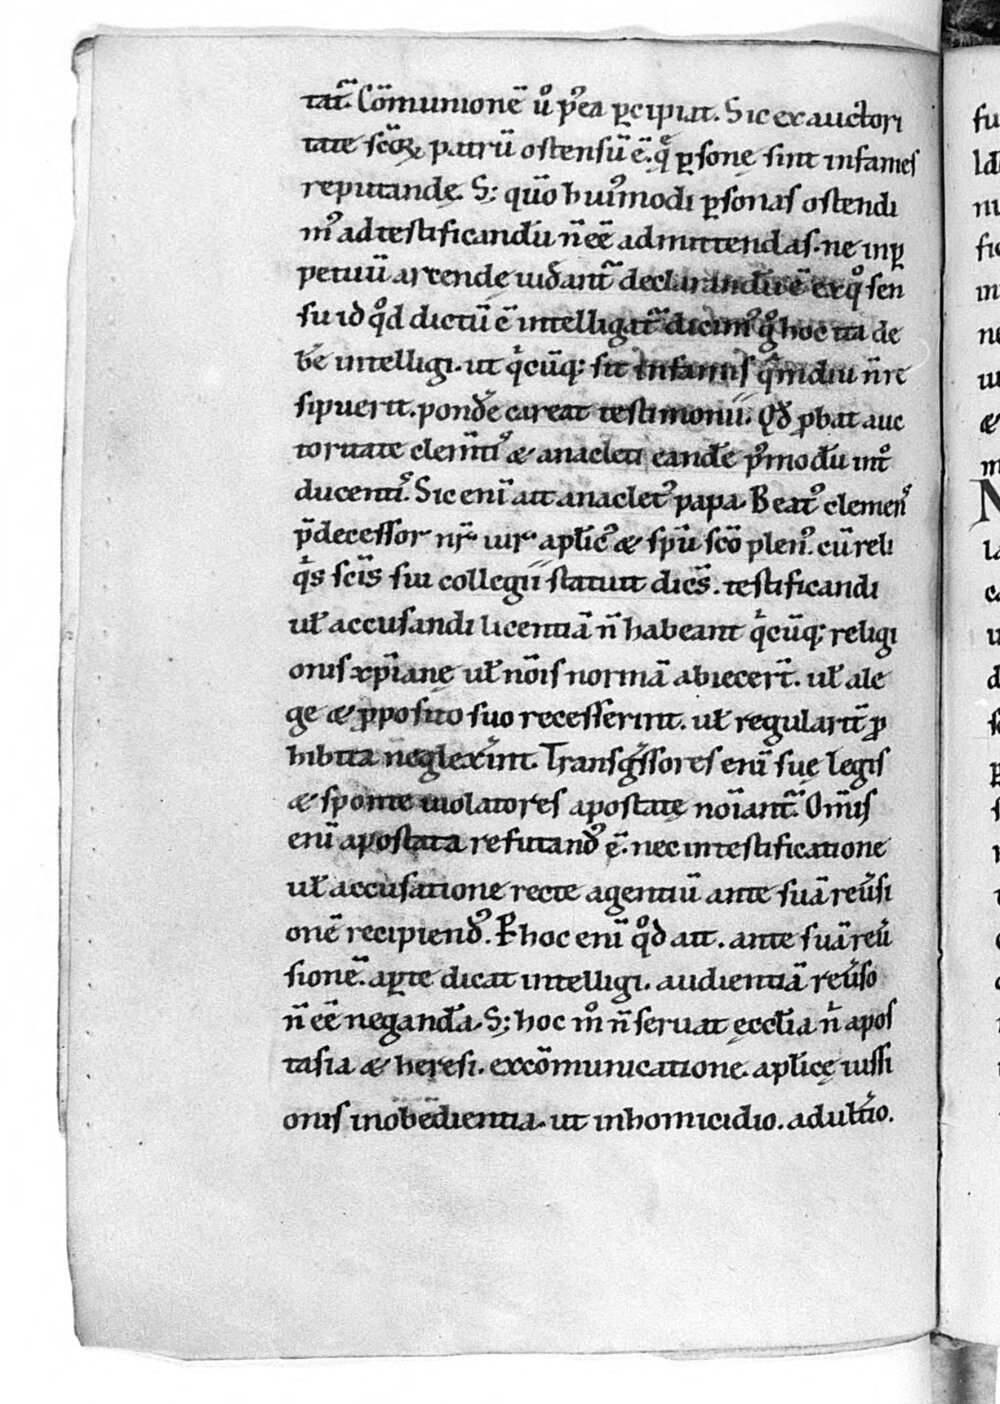 tat̃. Cõmunionẽ ůˀ pˀea ꝑcipiat. Sic ex auctori
tate scõꝝ patrũ ostensũ ẽ. qͤ ꝑsonę sint infames
reputandę. S; qũo huiˀmodi ꝑsonas ostendi
mˀ ad testificandũ ñ eẽ admittendas. ne inꝑ
petuũ arcende uiðant̃ declarandũ ẽ ex qͦ sen
su id qͦd dictũ ẽ intelligat̃ dicimˀ qͦ hoc ita de
bẽ intelligi. ut qͥcũq; sit infamis qͣmdiu ñ re
sipuerit. pondˀe careat testimonii. Qð ꝓbat auc
toritate clem̃tiˀ & anacleti eandẽ pˀmodũ int̊
ducentiˀ. Sic enĩ ait anacletˀ papa. Beatˀ clemenˀ
p̃decessor nr̃ uir apłicˀ & sp̃u scõ plenˀ. cũ reli
qͥs scĩs sui collegii statuit dic̃s. testificandi
uł accusandi licentiã ñ habeant qͥcũq; religi
onis xp̃ianę uł nõis normã abiecer̃t. uł a le
ge & ꝓposito suo recesserint. uł regularit̃ ꝓ
hibita neglexer̃int. Transgˀssores enĩ suę legis
& sponte uiolatores apostatę noĩant̃. Om̃is
enĩ apostata refutandˀ ẽ. nec in testificatione
uł accusatione recte agentiũ ante suã reuˀsi
onẽ recipiendˀ. Ꝑ hoc enĩ qͦd ait. ante suã reuˀ
sionẽ. aꝑte dicat intelligi. audientiã reuˀso
ñ eẽ negandã. S; hoc mͦ ñ seruat ęccłia ñ in apos
tasia & heresi. excõmunicatione. apłicę iussi
onis inobedientia. ut in homicidio. adultˀio.